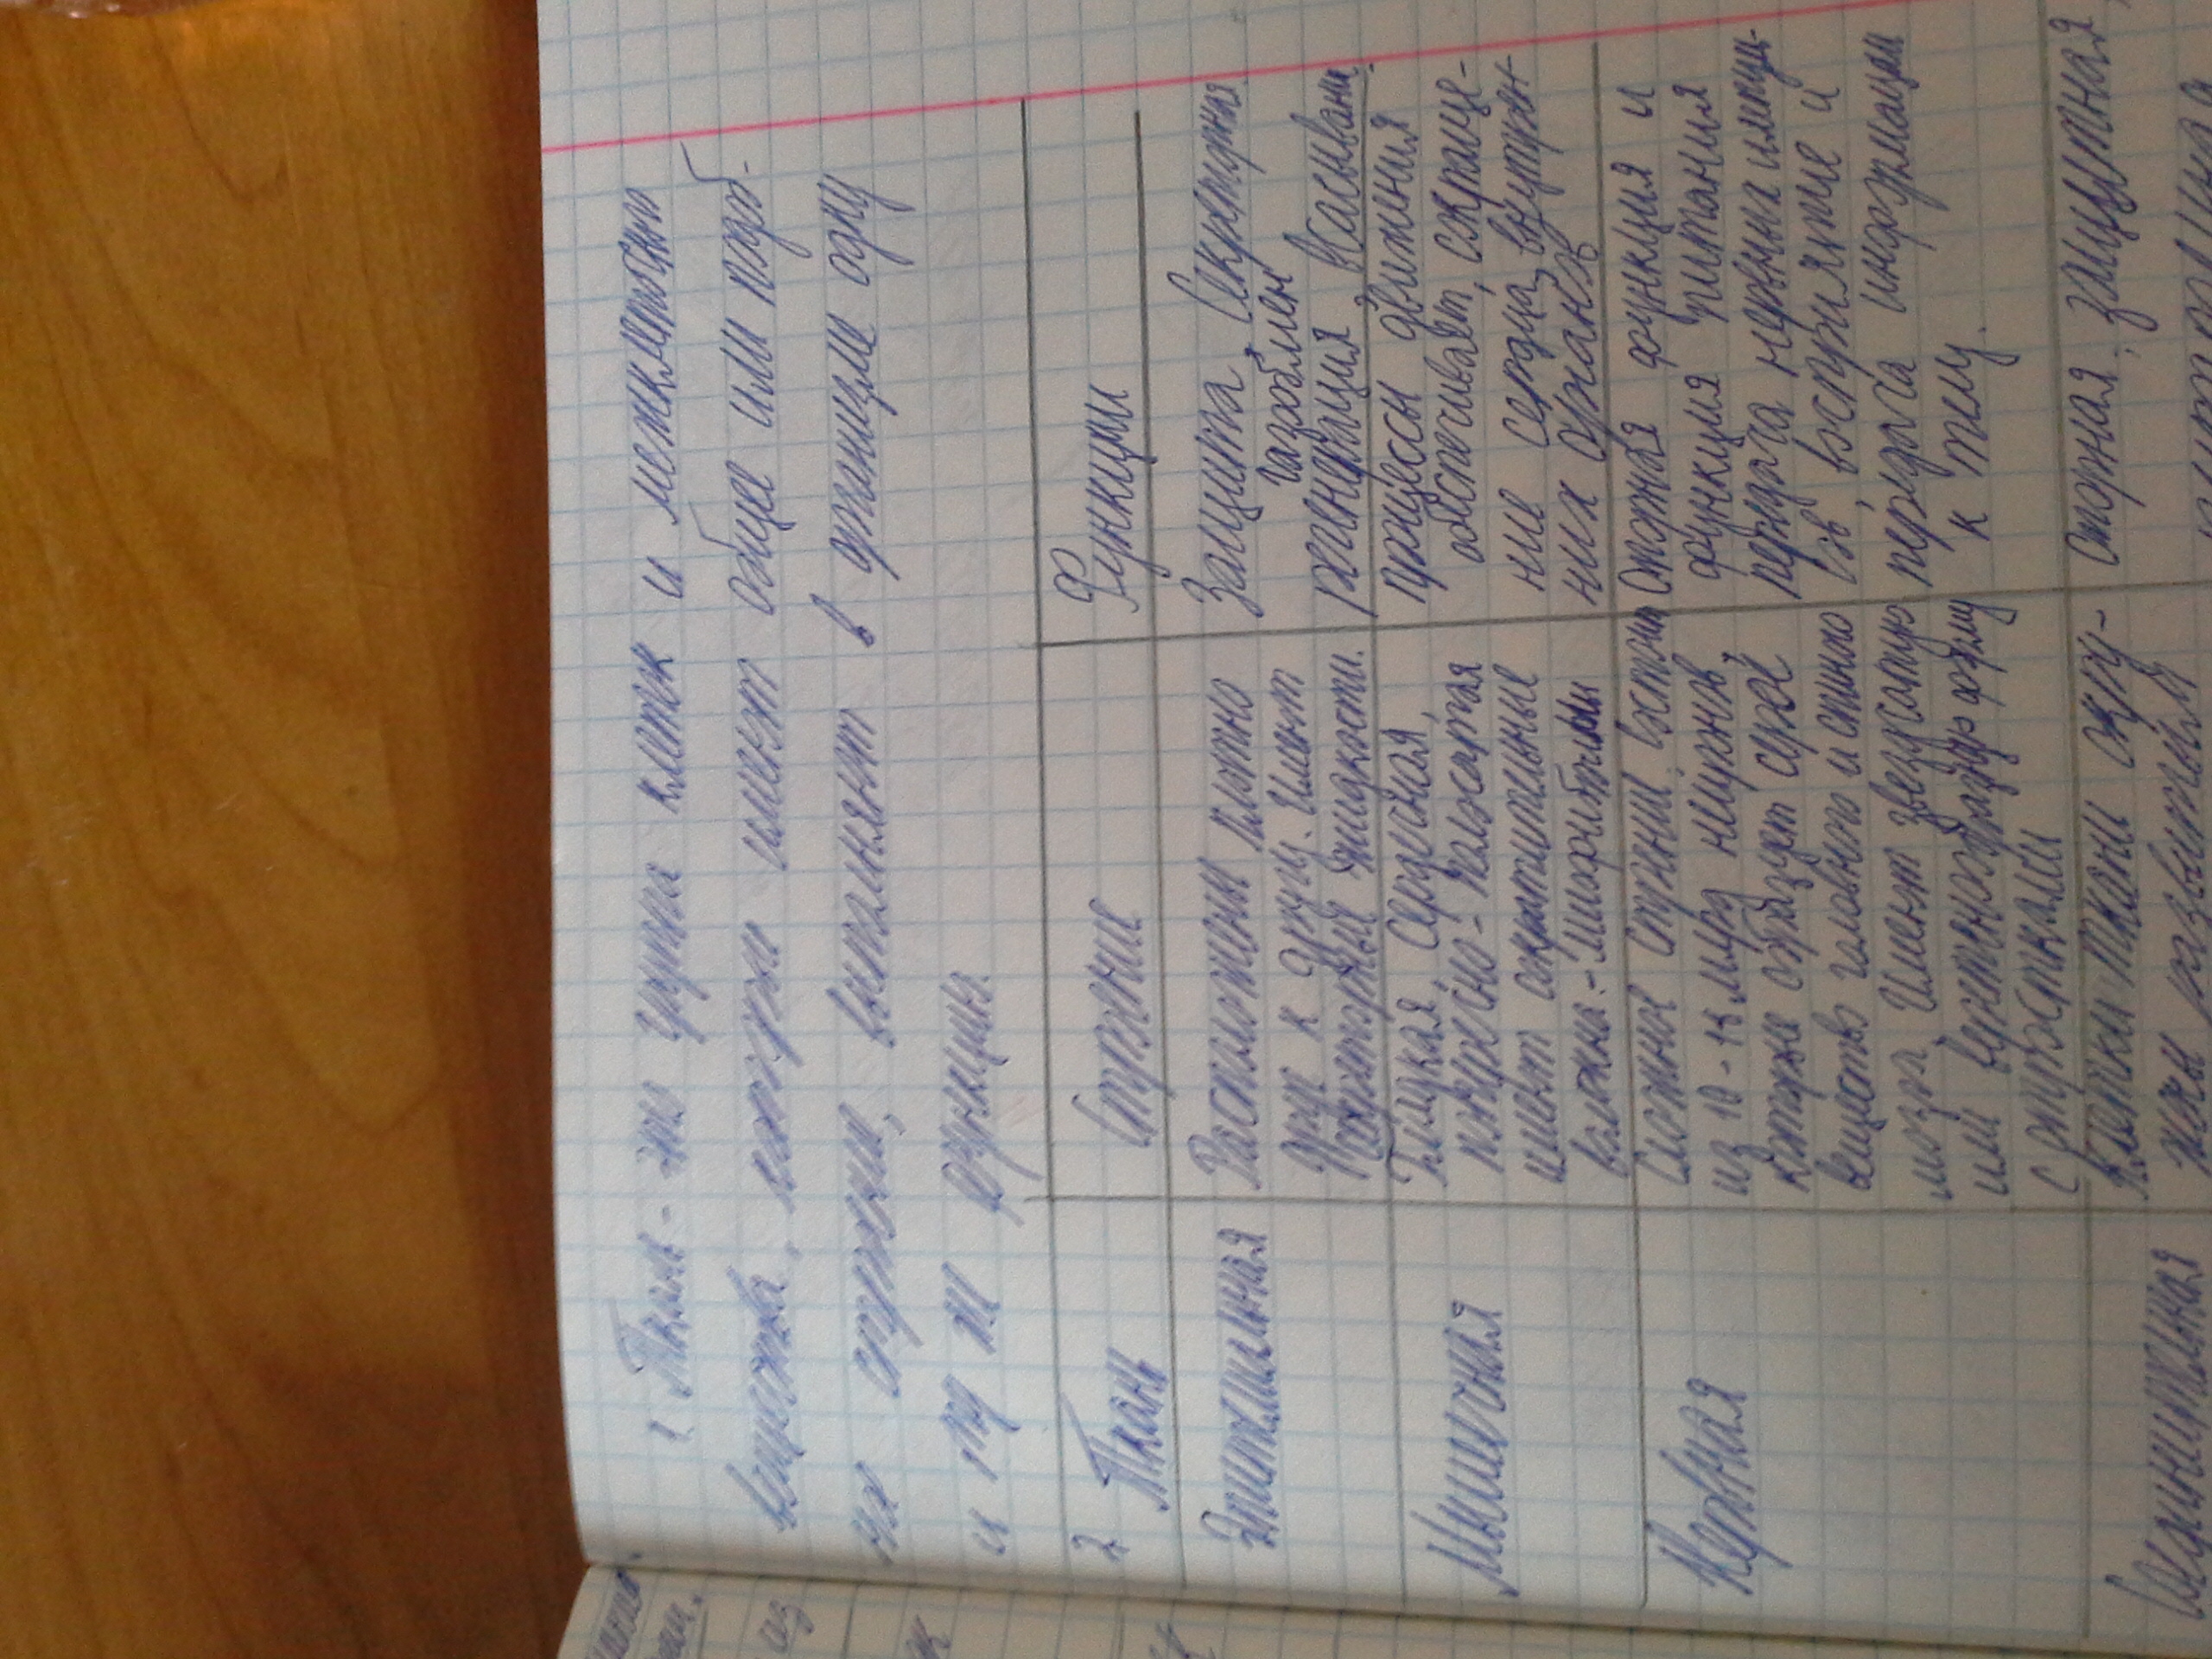 1 Ткань - это группа клеток и межклеточн
вещества, которые имеют общее или подоб-
ных строении, выполняет в организме одну
и ту же функцию.
2 Ткань
Строение
Функции
Эпителиальная
Расположены плотно
друг к другу. Имеют
жидкости.
Защита, Секреторная
газообмен
регенерация, всасывани.
Мышечная
Гладкая, сердечная,
поперечно-полосатая
имеет сократительные
волокна - миофибриллы
процессы движения
обеспечивает, сокраще-
ние сердца, внутрен
них органов
Нервная
Сложное строение. состоит
из 10-14 млрд нейронов,
которые образует серое
вещество головного и спинного
мозга. Имеют звездчатую
или веретенообразную форму
с отростками
Опорная функция и
функция питания
передача нервных импуль-
сов, восприятие и
передача информации
к телу.
Соединительная
Клетки ткани окру-
жены развитым
опорная, защитная,